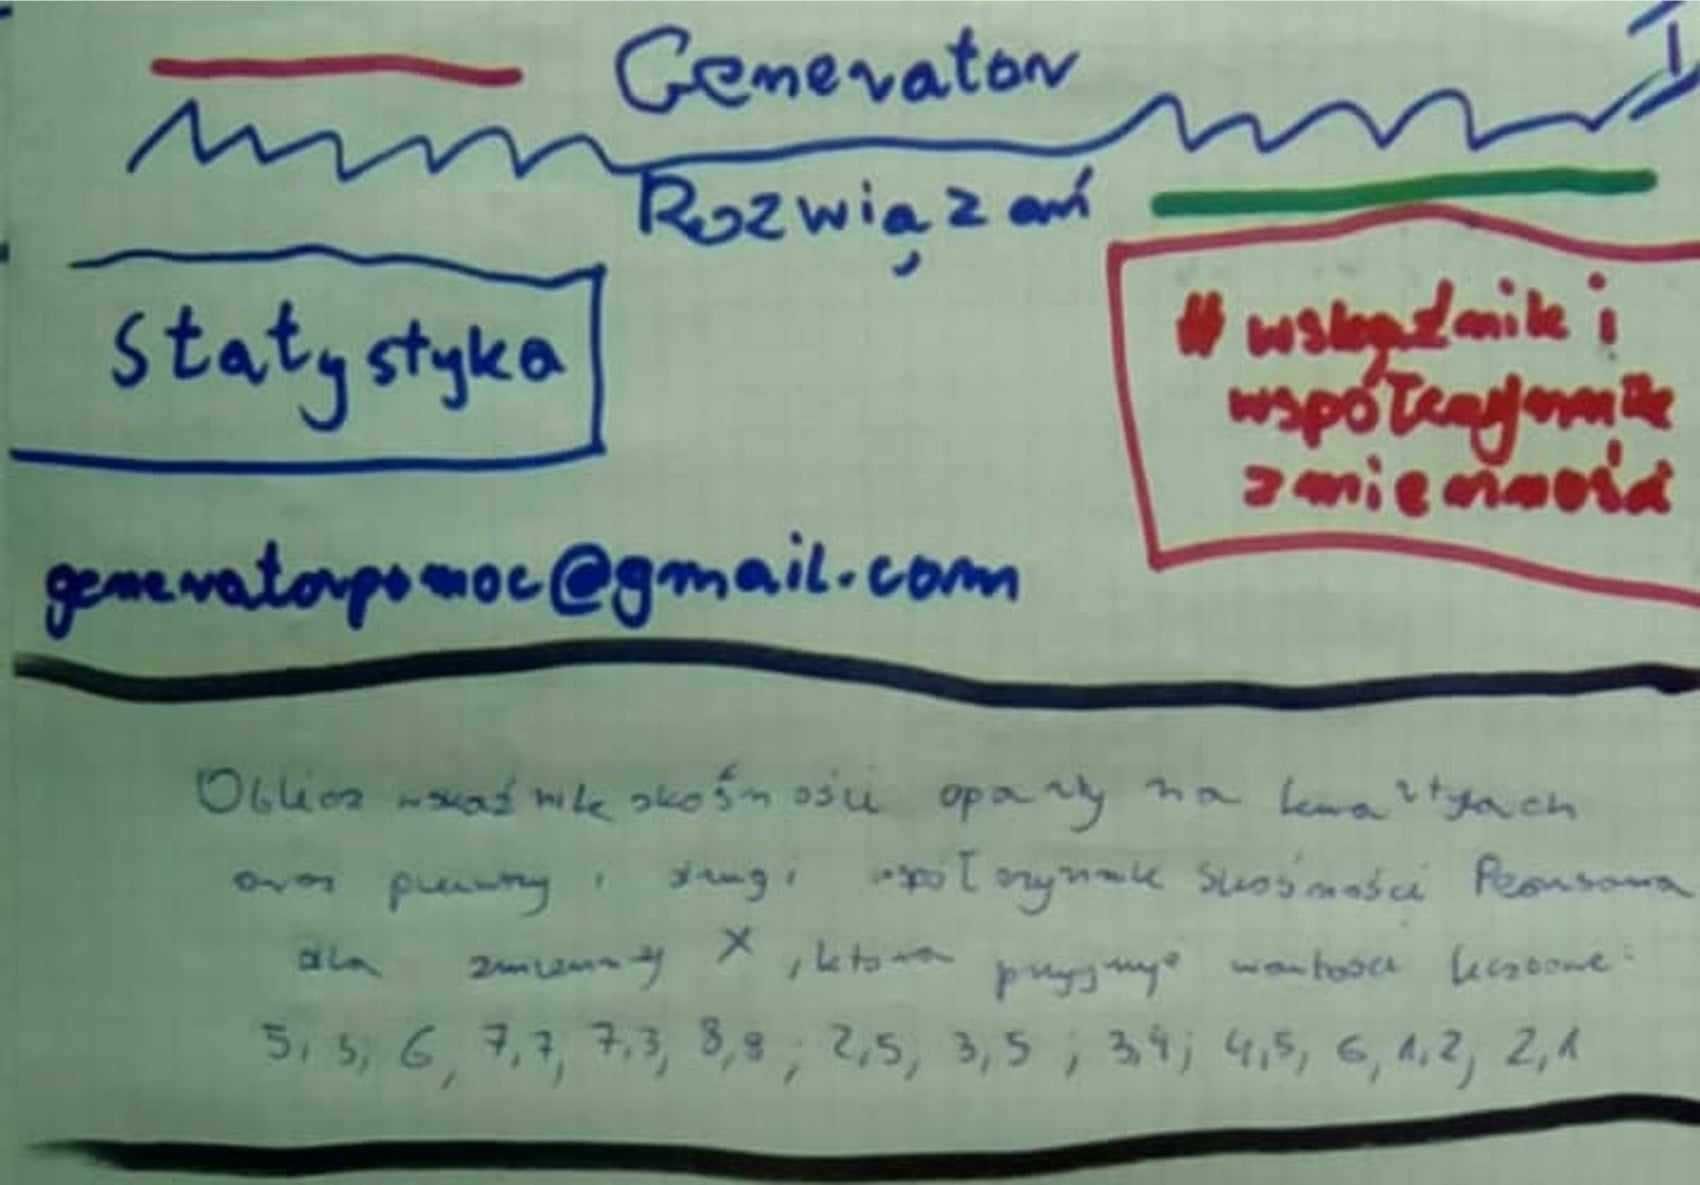 Generator
I
Rozwiązań
Statystyka
# wskaźnik i
współczynnik
zmienności
generatorpomoc@gmail.com
Oblicz wskaźnik skośności oparty na kwartylach
oraz pierwszy i drugi współczynnik skośności Pearsona
dla zmiennej X, która przyjmuje wartości liczbowe:
6, 7,7, 7,3, 8,8; 2,5, 3,5; 3,4; 4,5, 6, 1,2, 2,1